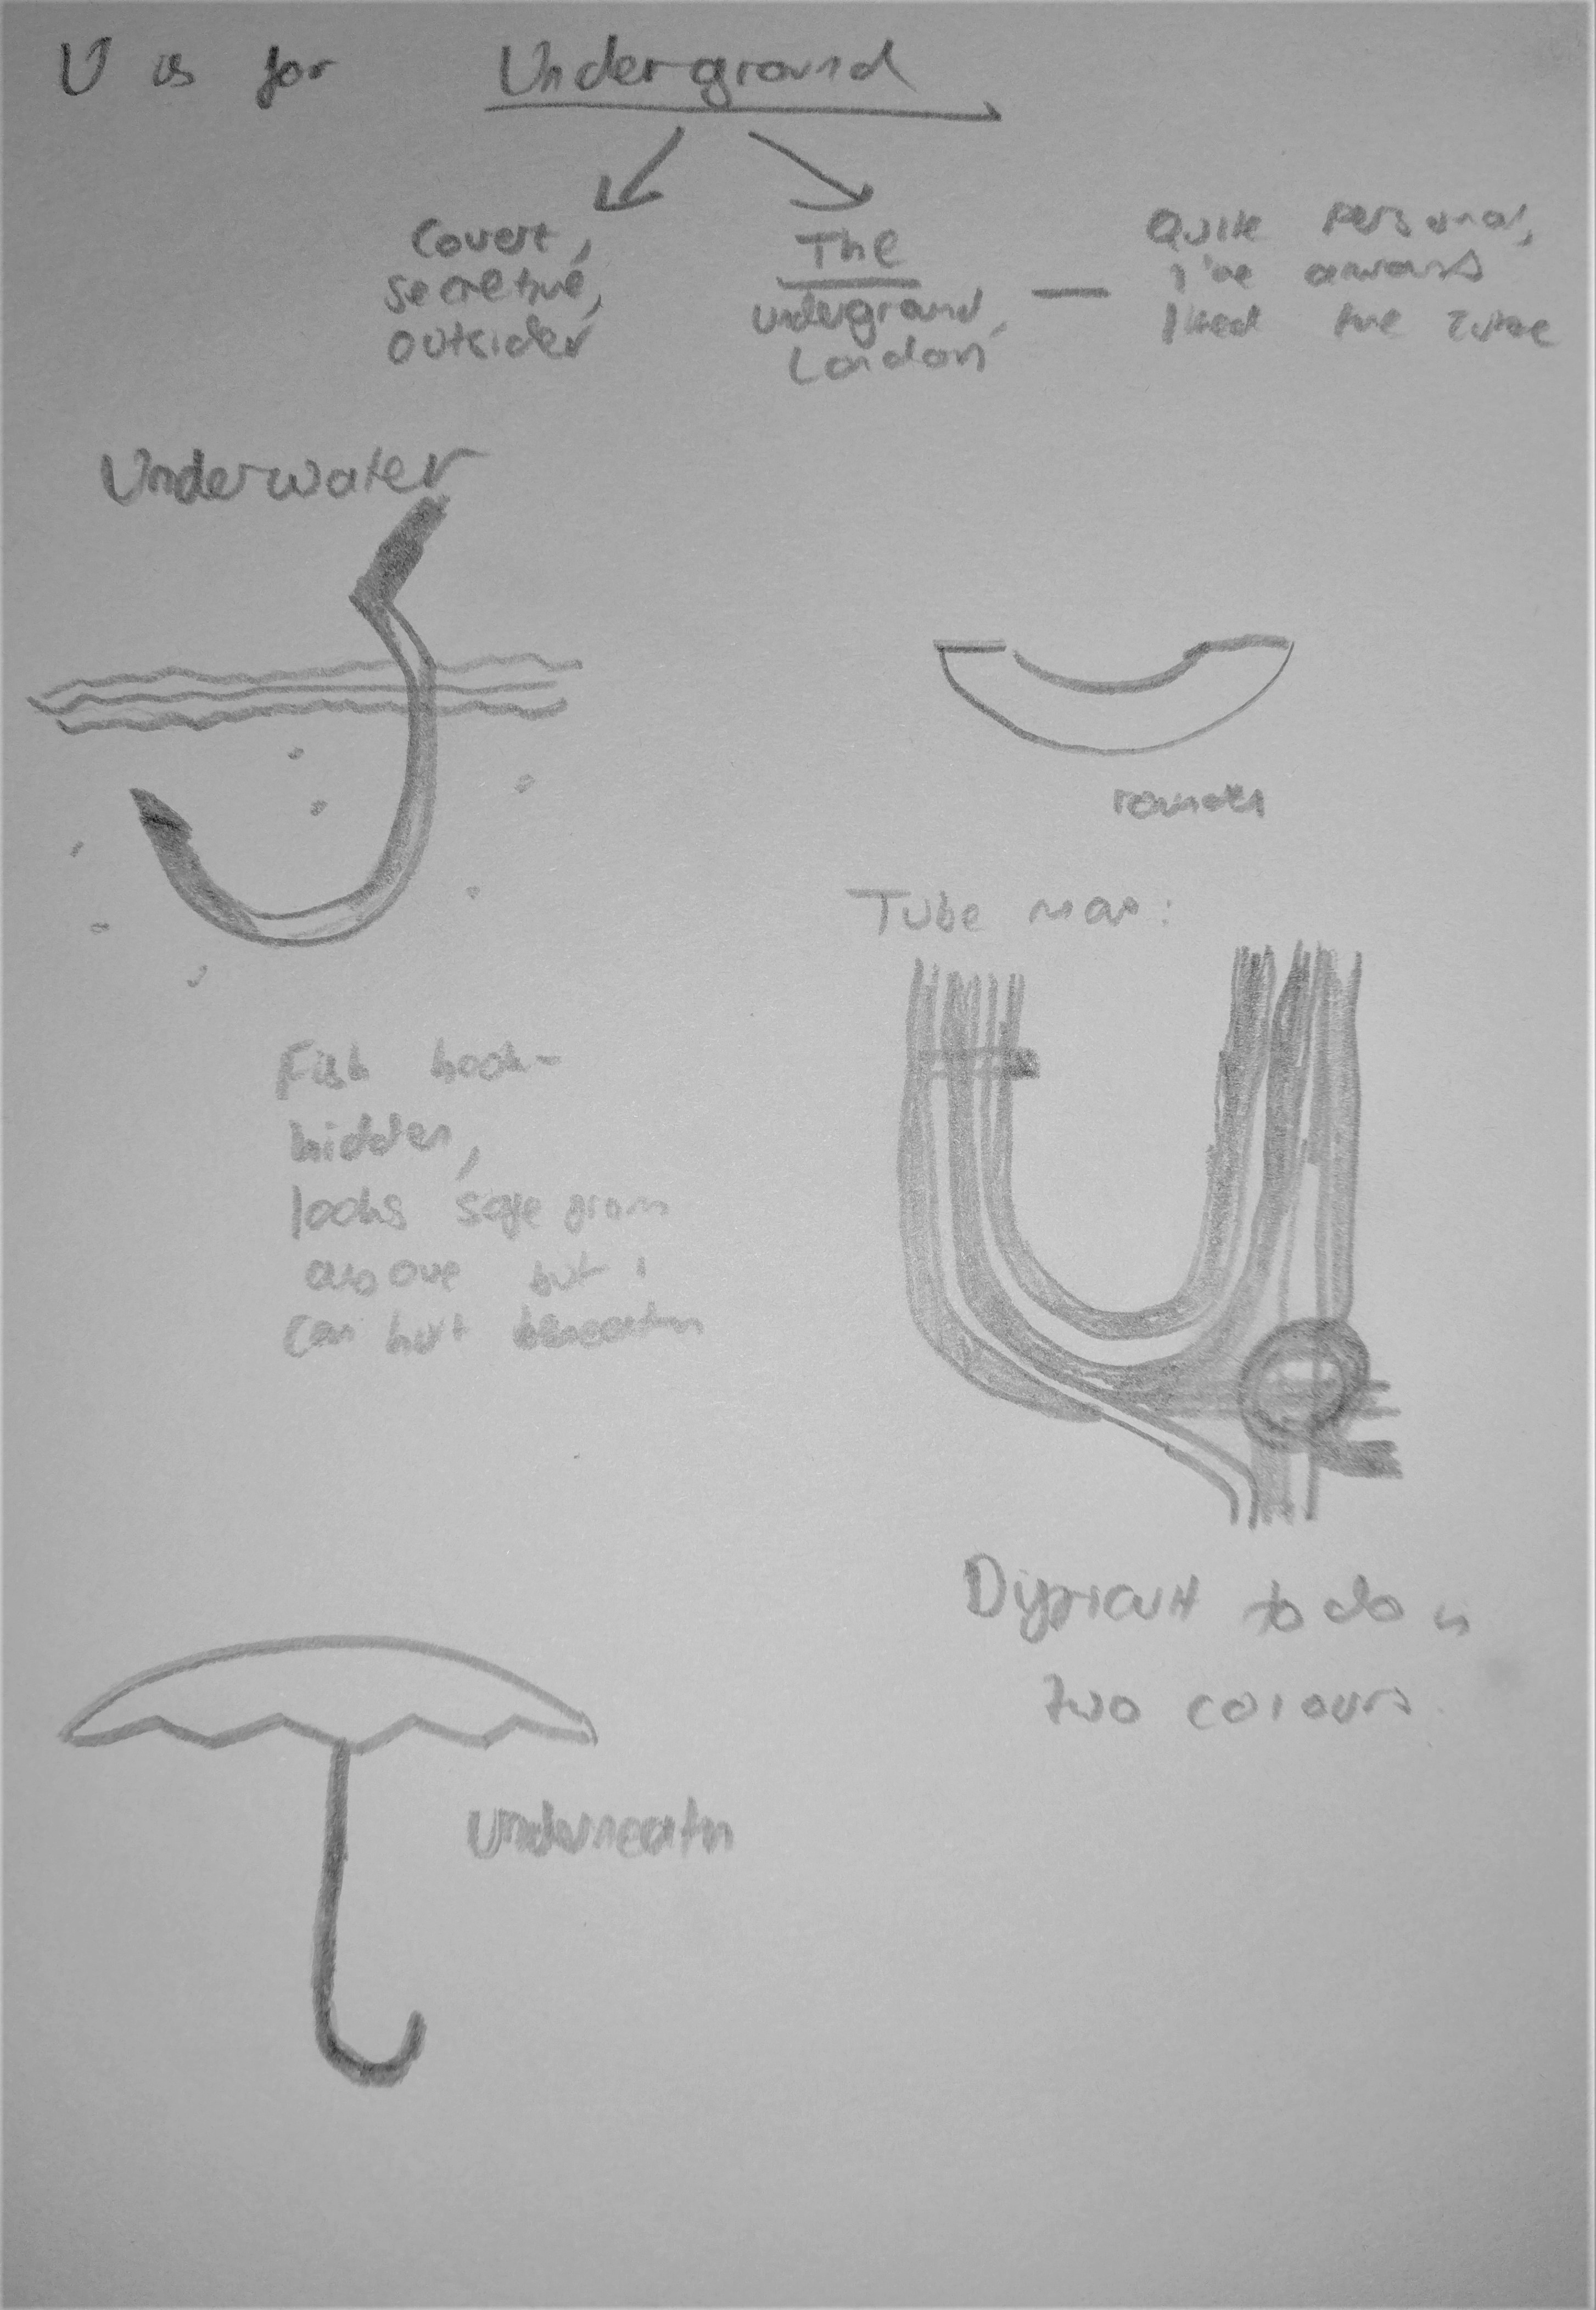 U is for Underground
Covert,
secretive,
outsider
The
underground,
London
Quite personal,
I've always
liked the tube
Underwater
Tube map:
Fish hook-
hidden,
looks safe from
above but
can hurt beneath
Difficult to do in
two colours.
Underneath